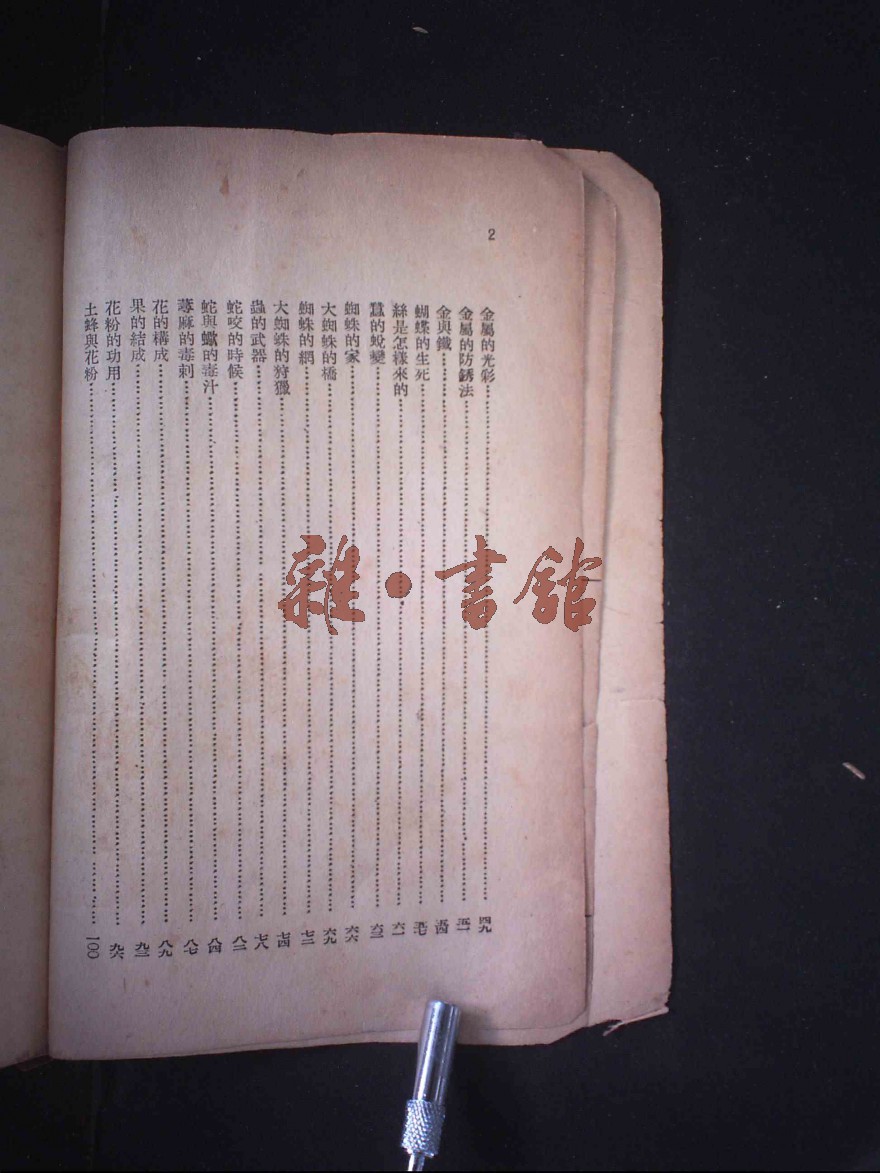 2
金屬的光彩……四九
金屬的防銹法……五一
金與鐵……五四
蝴蝶的生死……五七
絲是怎樣來的……六一
蠶的蛻變……六三
蜘蛛的家……六六
大蜘蛛的橋……六九
蜘蛛的網……七二
大蜘蛛的狩獵……七四
蟲的武器……七八
蛇咬的時候……八二
蛇與蠍的毒汁……八四
蕁麻的毒刺……八七
花的構成……八九
果的結成……九三
花粉的功用……九六
土蜂與花粉……一〇〇
雜·書館